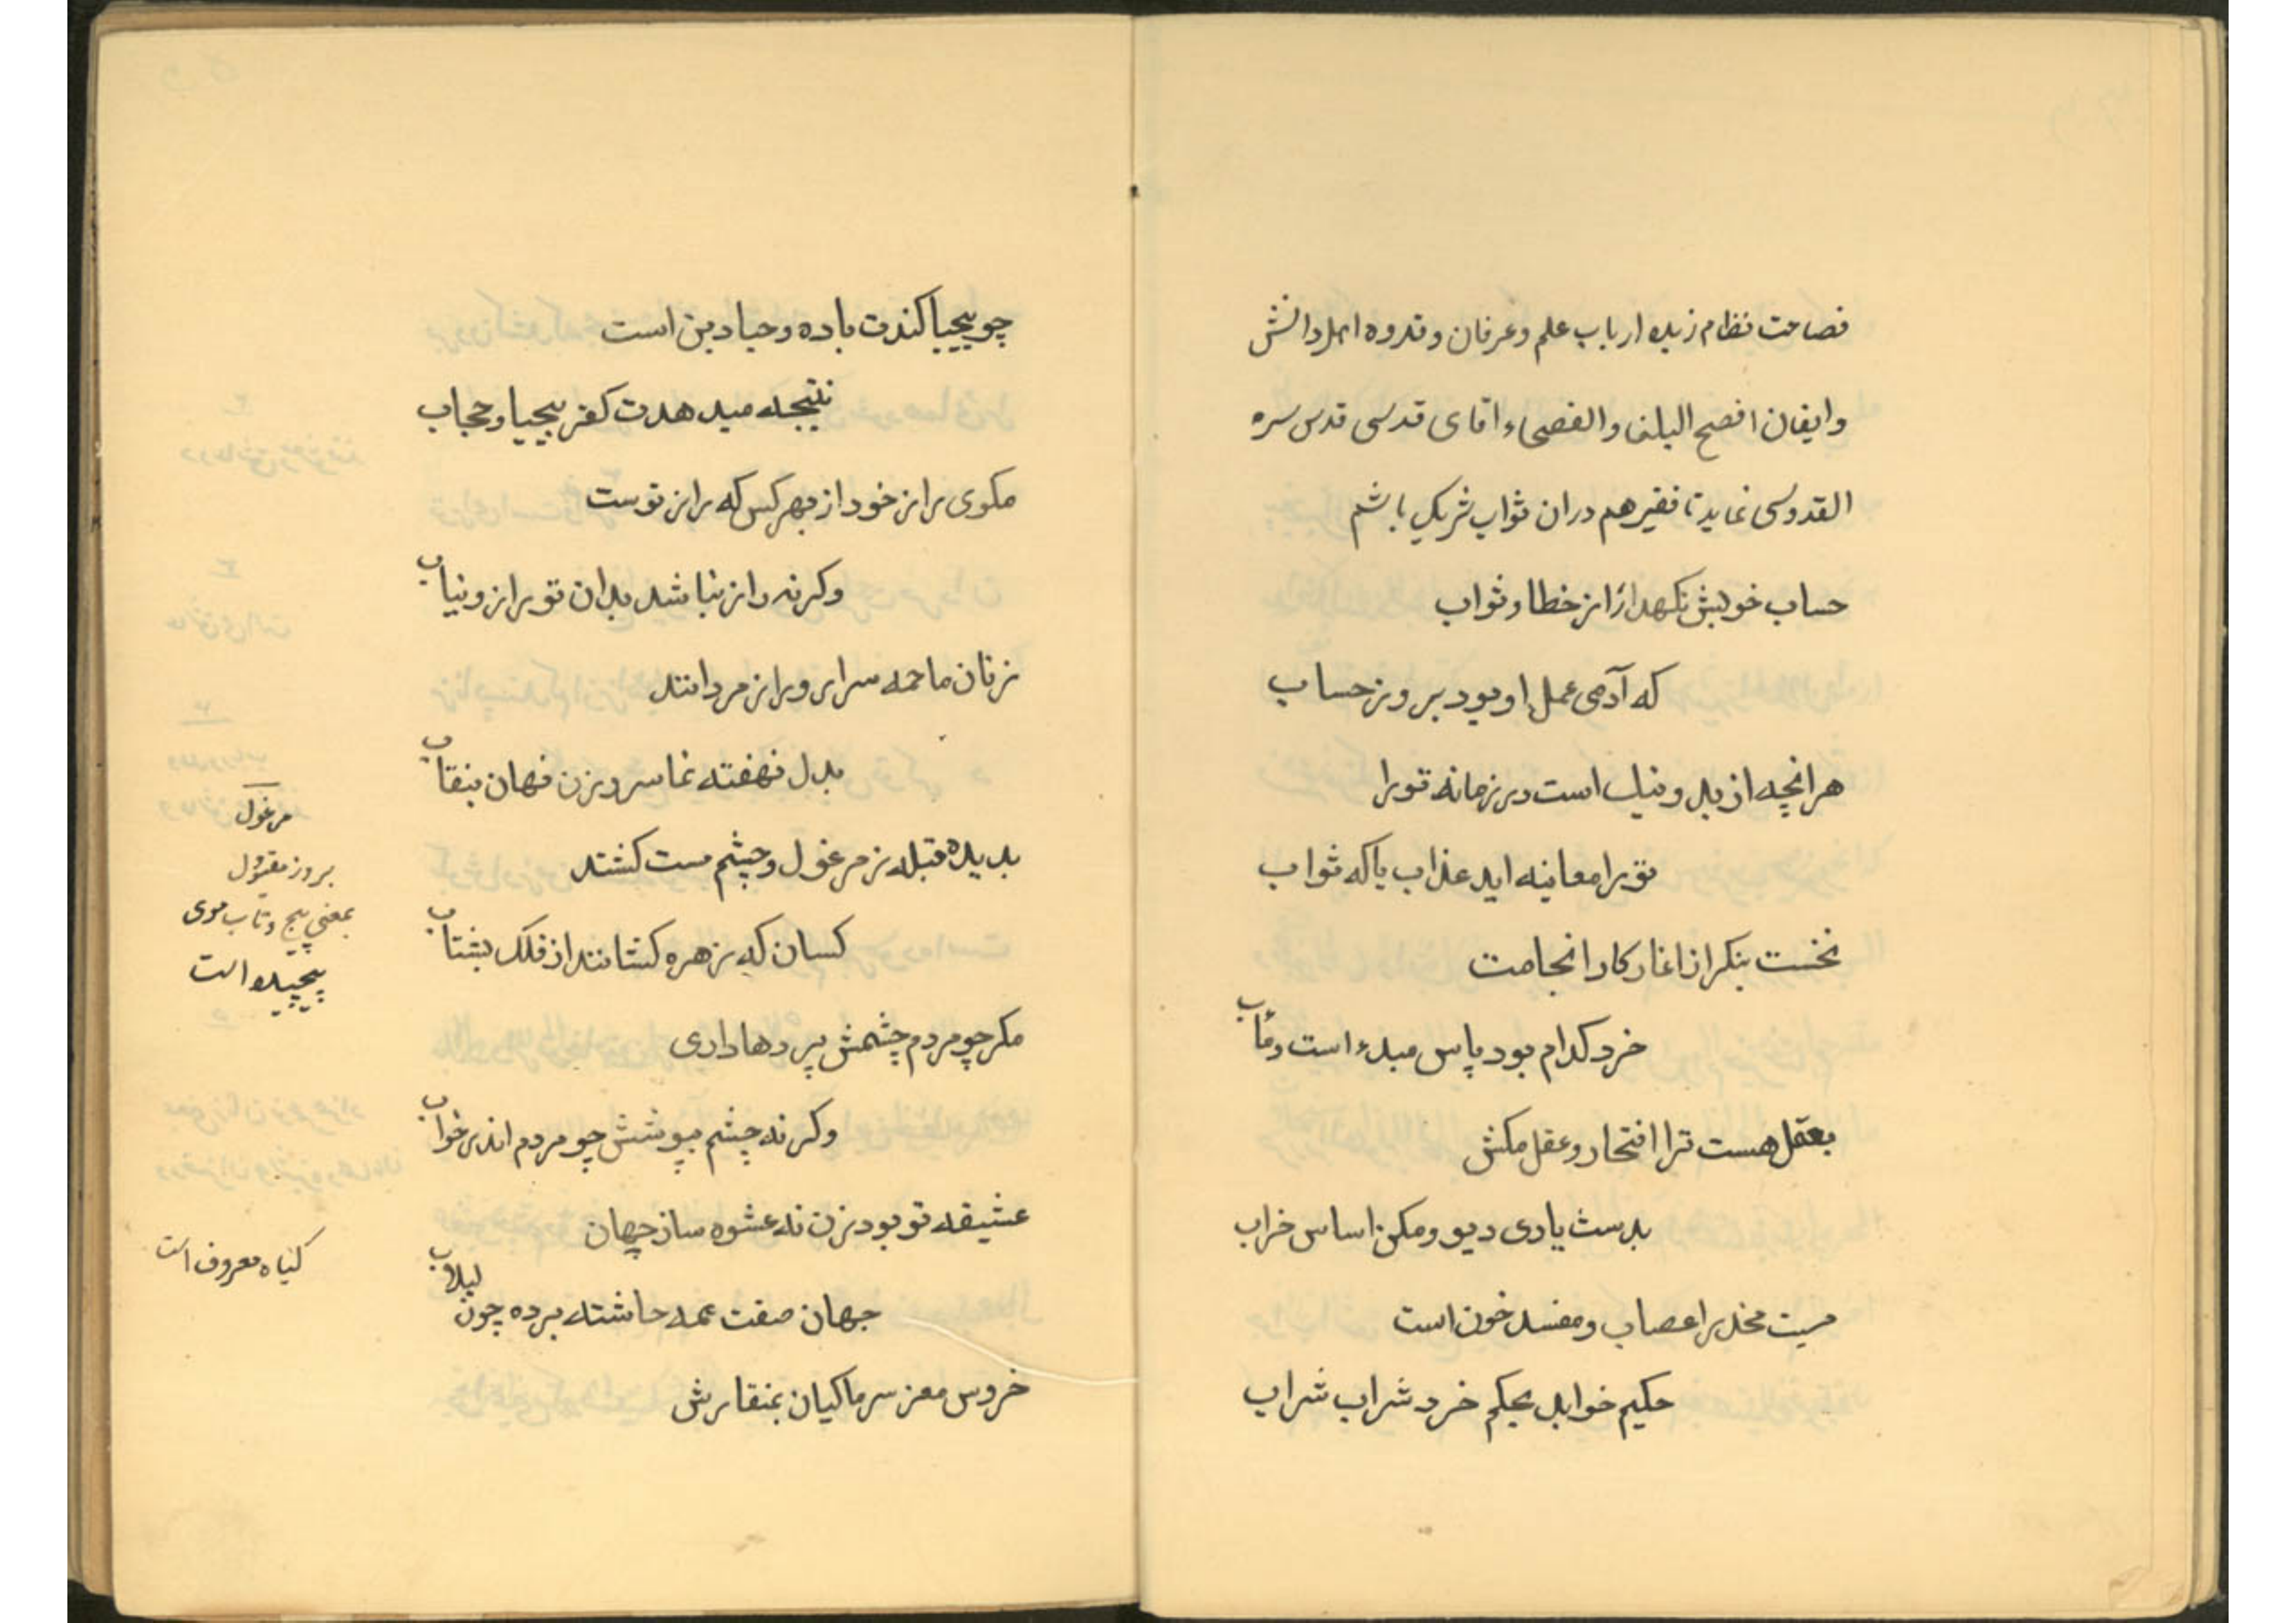 فصاحت نظام زبده ارباب علم و عرفان و قدوه اهل دانش
وایقان افصح البلغا والفصحاء اقای قدسی قدس سره
القدوسی نماید تا فقیر هم دران ثواب شریک باشم
حساب خویش نکهدار از خطا و ثواب
که آدمی عمل او بود بروز حساب
هر انچه از بد و نیک است در زمانه تو را
تو را معاینه اید عذاب یا که ثواب
نخست بنکر از اغاز کار انجامت
خرد کدام بود پاس مبدء است و مأب
بعقل هست ترا افتخار و عقل مکش
بدست یادی دیو و مکن اساس خراب
میت مخدر اعصاب و مفسد خون است
حکیم خواند بحکم خرد شراب شراب
چو بیحیا کندت باده و حیا دین است
نتیجه میدهدت کفر بیحیا و حجاب
مکوی راز خود از بهر کس که راز توست
وکرنه راز نباشد بدان تو راز و نیاب
زنان ما همه سرایر و راز مردانند
بدل نهفته نما سر و زن نهان بنقاب
بدیده قبله ز مرغول و چشم مست کشند
کسان که زهره کشانند از فلک بشتاب
مکر چو مردم چشمش بپردها داری
وکرنه چشم بپوشش چو مردم اندر خواب
عشیقه تو بود زن نه عشوه ساز جهان
جهان صفت عمه حاشته برده چون لبلاب
خروس مغز سر ماکیان بمنقارش
مرغول
بروز مقتول
بمعنی پیچ و تاب موی
پیچیده است
کیاه معروف است